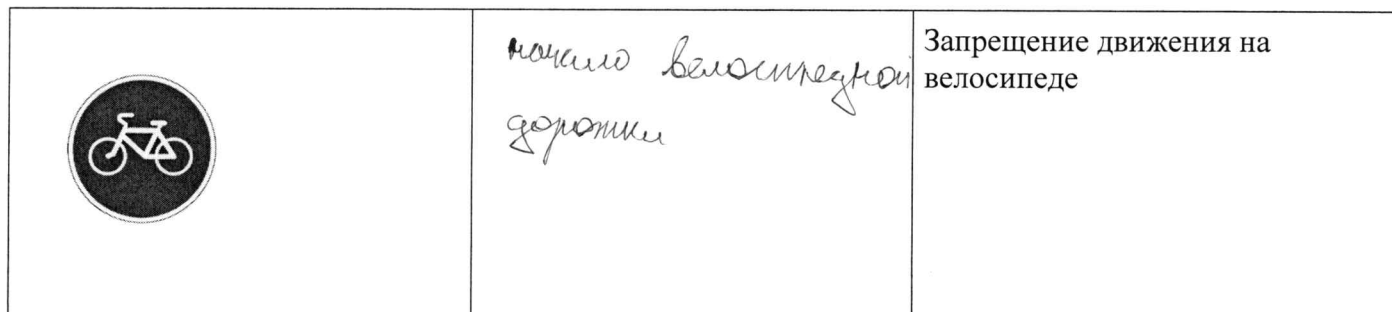 начало велосипедной
дорожки
Запрещение движения на
велосипеде